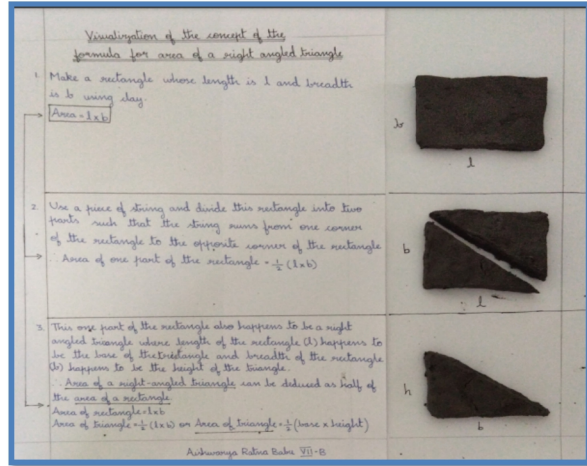 Visualization of the concept of the
formula for area of a right angled triangle
1. Make a rectangle whose length is l and breadth
is b using clay.
Area = l×b
b
l
2. Use a piece of string and divide this rectangle into two
parts such that the string runs from one corner
of the rectangle to the opposite corner of the rectangle
∴ Area of one part of the rectangle = 1/2 (l×b)
b
l
3. This one part of the rectangle also happens to be a right
angled triangle where length of the rectangle (l) happens to
be the base of the and breadth of the rectangle
(b) happens to be the height of the triangle.
∴ Area of a right-angled triangle can be deduced as half of
the area of a rectangle.
Area of rectangle = l×b
Area of triangle = 1/2 (l×b) or Area of triangle = 1/2 (base × height)
h
b
Ratna Babu VI-B